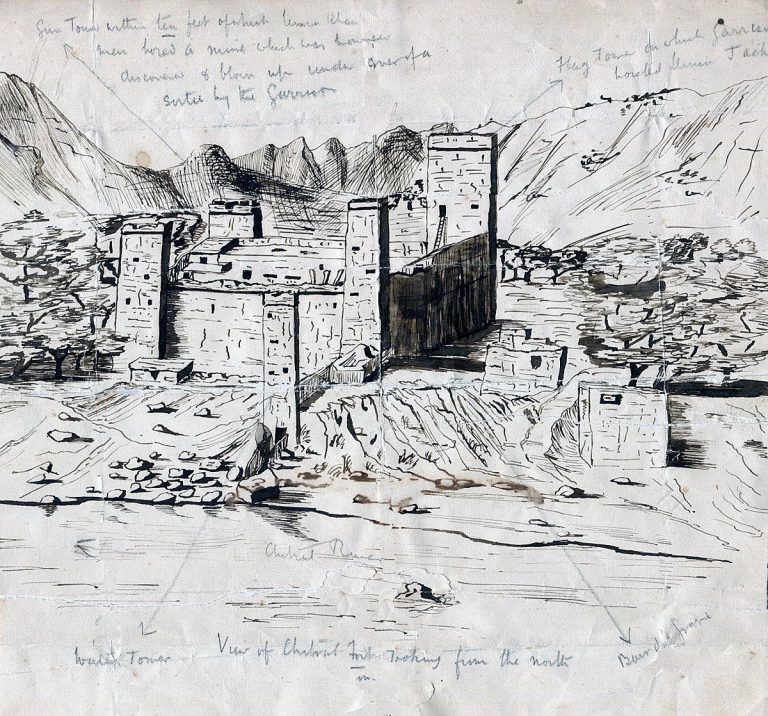 Gun Tower within ten feet of which Umra Khan
men bored a mine which was however
discovered & blown up under cover of a
sortie by the Garrison
Flag Tower on which Garrison
hoisted Union Jack
Chitral River
Water Tower
View of Chitral Fort looking from the north